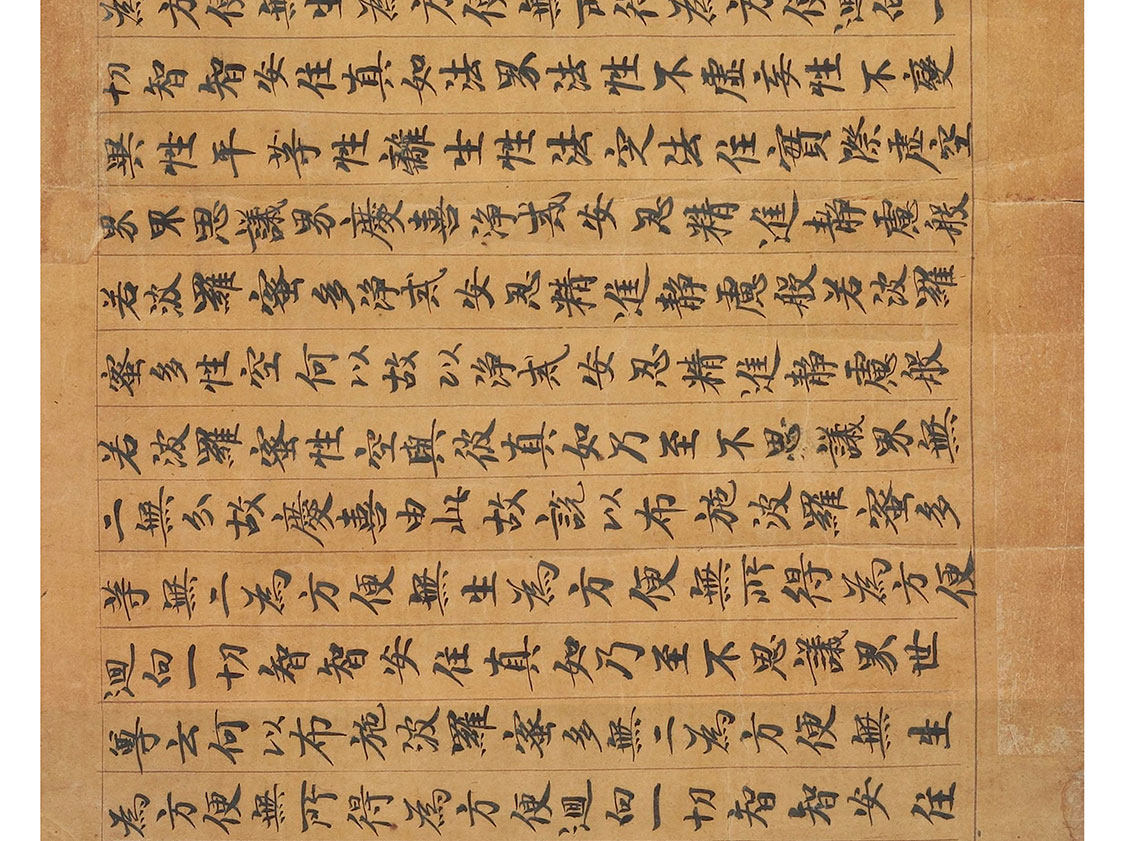 為方便無生為方便無所得為方便迴向一
切智智安住真如法界法性不虛妄性不變
異性平等性離生性法定法住實際虛空
界不思議界慶喜淨戒安忍精進靜慮般
若波羅蜜多淨戒安忍精進靜慮般若波羅
蜜多性空何以故以淨戒安忍精進靜慮般
若波羅蜜性空與彼真如乃至不思議界無
二無分故慶喜由此故說以布施波羅蜜多
等無二為方便無生為方便無所得為方便
迴向一切智智安住真如乃至不思議界世
尊云何以布施波羅蜜多無二為方便無生
為方便無所得為方便迴向一切智智安住